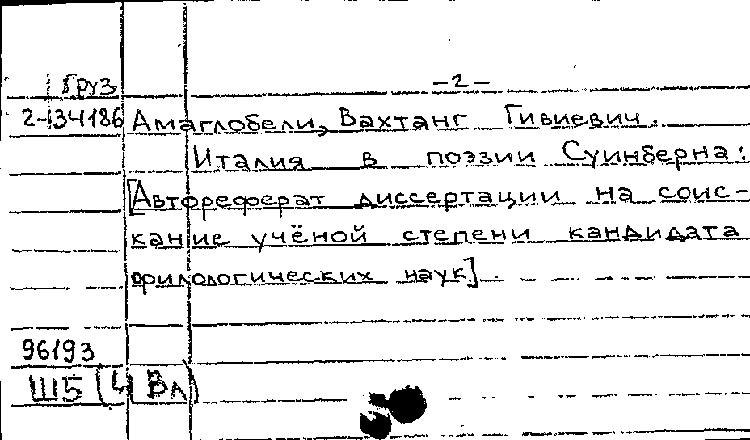 Груз
– 2 –
2-34186 Амаглобели, Вахтанг Гивиевич.
Италия в поэзии Суинберна:
[Автореферат диссертации на соис-
кание учёной степени кандидата
филологических наук].
96193
Ш5(4Вл)